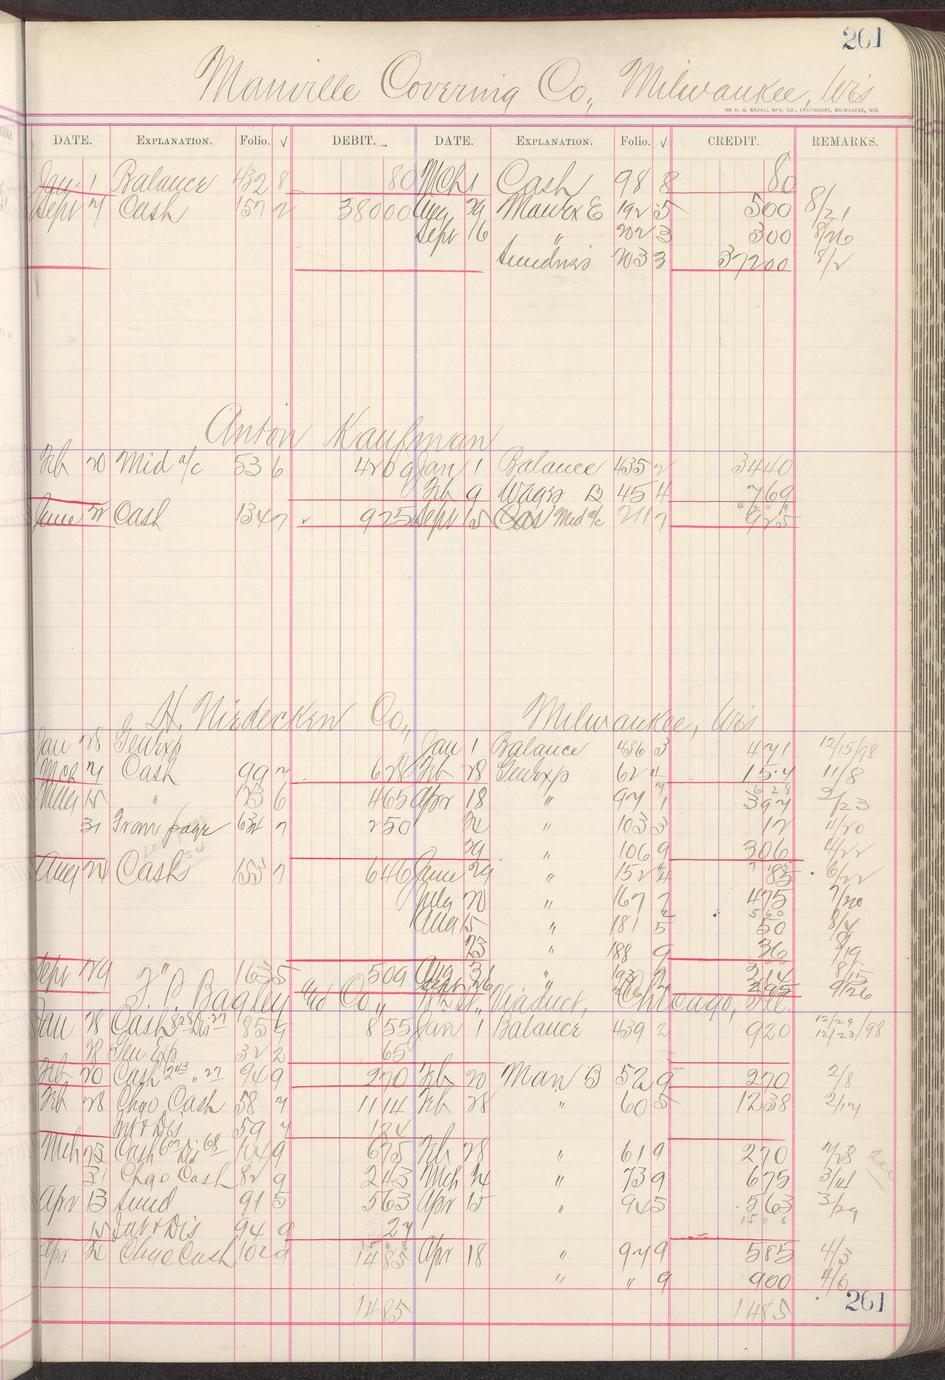 261
Manville Covering Co., Milwaukee, Wis
DATE. EXPLANATION. Folio. √ DEBIT. DATE. EXPLANATION. Folio. √ CREDIT. REMARKS.
Jan 1 Balance 432 8 80 Mch 1 Cash 98 8 80
Sept 7 Cash 157 2 38000 Aug 29 Manex E 192 5 500 8/21
Sept 16 " 202 3 300 8/26
Sundries 203 3 37200 8/2
Anton Kaufman
Feb 20 Mid a/c 53 6 4209 Jan 1 Balance 435 2 3440
Feb 9 Wages B 45 4 769
June 2 Cash 134 7 925 Sept 15 Mid a/c 211 7 925
H. Niedecken Co., Milwaukee, Wis
Jan 28 Genexp Jan 1 Balance 436 3 471 12/15/98
Mch 7 Cash 99 7 628 Feb 28 Genexp 62 4 157 11/8
May 15 " 6 465 Apr 18 " 97 1 397 2/23
31 From page 632 7 250 " 103 3 12 4/20
29 " 106 9 306 4/22
Aug 24 Cash 155 7 646 June 29 " 152 4 85 6/22
July 20 " 167 7 475 7/20
Aug 5 " 181 5 50 8/4
23 " 188 9 36
Sept 29 " 163 5 509 Aug " 214 8/15
Sept 26 " 295 9/26
Viaduct, Chicago, Ill.
Jan 28 Cash 85 7 855 Jan 1 Balance 439 2 920 12/29 12/23/98
28 Gen Exp 32 2 65
Feb 20 Cash 243 " 27 94 9 270 Feb 20 Man B 52 9 270 2/8
Feb 28 Chgo Cash 58 7 1114 Feb 28 " 60 5 1238 2/17
Int & Dis 59 7 124
Mch 23 Cash 607 Dis 68 104 9 675 Feb 28 " 61 9 270 2/28
31 Chgo Cash 82 9 243 Mch 24 " 73 9 675 3/14
Apr 13 Sund 91 5 563 Apr 15 " 94 5 563 3/29
15 Int & Dis 94 9 27
Apr 24 Chgo Cash 102 9 1485 Apr 18 " 97 9 585 4/3
" " 9 900 4/6
1485 1485
261